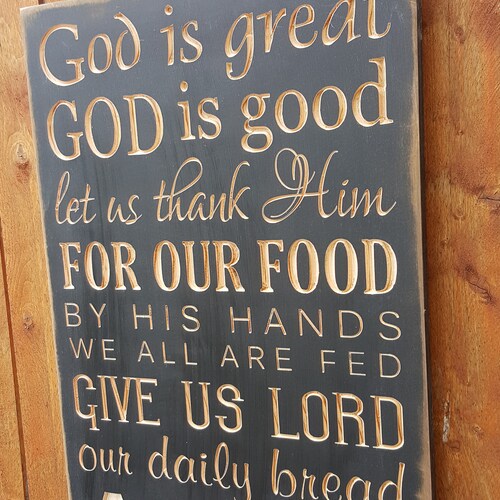 God is great
GOD is good
let us thank Him
FOR OUR FOOD
BY HIS HANDS
WE ALL ARE FED
GIVE US LORD
our daily bread